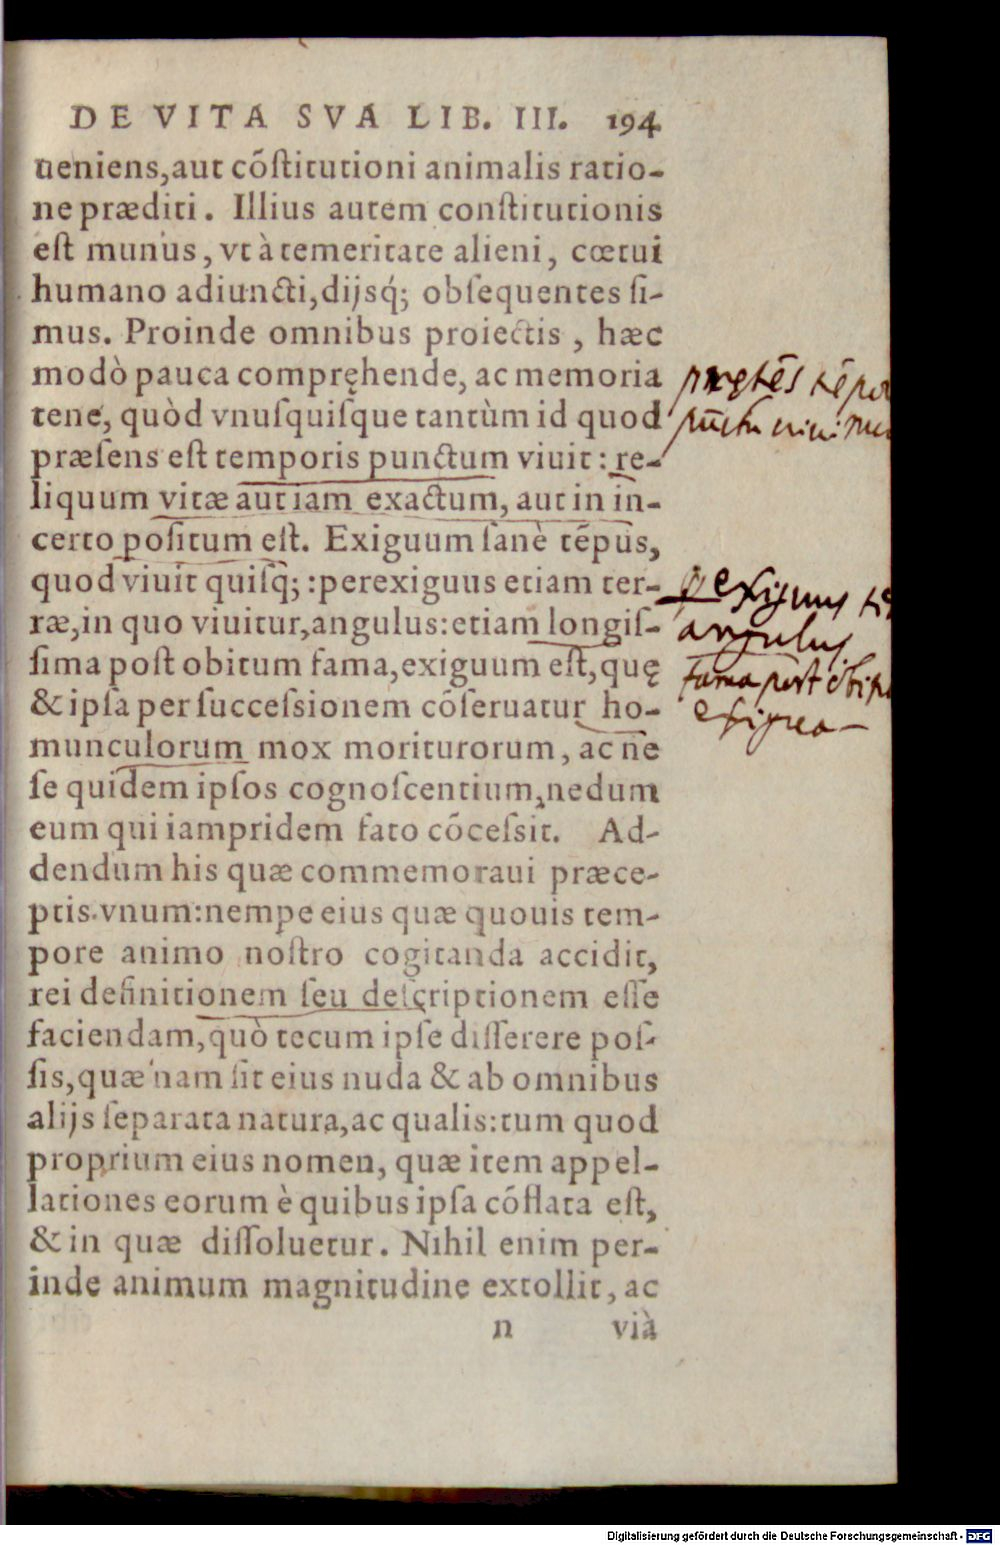 DE VITA SVA LIB. III. 194
ueniens,aut cōſtitutioni animalis ratio-
ne præditi. Illius autem conſtitutionis
eſt munus, vt à temeritate alieni, cœtui
humano adiuncti,dijsq́; obſequentes ſi-
mus. Proinde omnibus proiectis, hæc
modò pauca compręhende, ac memoria
tene, quòd vnuſquiſque tantùm id quod
præſens eſt temporis punctum viuit: re-
liquum vitæ aut iam exactum, aut in in-
certo poſitum eſt. Exiguum ſanè tēpus,
quod viuit quiſq́;: perexiguus etiam ter-
ræ,in quo viuitur,angulus: etiam longiſ-
ſima poſt obitum fama,exiguum eſt,quę
& ipſa per ſucceſſionem cōſeruatur ho-
munculorum mox moriturorum, ac ne
ſe quidem ipſos cognoſcentium,nedum
eum qui iampridem fato cōceſsit. Ad-
dendum his quæ commemoraui præce-
ptis vnum:nempe eius quæ quouis tem-
pore animo noſtro cogitanda accidit,
rei definitionem ſeu deſcriptionem eſſe
faciendam,quò tecum ipſe diſſerere poſ-
ſis,quæ nam ſit eius nuda & ab omnibus
alijs ſeparata natura,ac qualis:tum quod
proprium eius nomen, quæ item appel-
lationes eorum è quibus ipſa cōflata eſt,
& in quæ diſſoluetur. Nihil enim per-
inde animum magnitudine extollit, ac
n vià
angulus
fama poſt
Digitalisierung gefördert durch die Deutsche Forschungsgemeinschaft - DFG